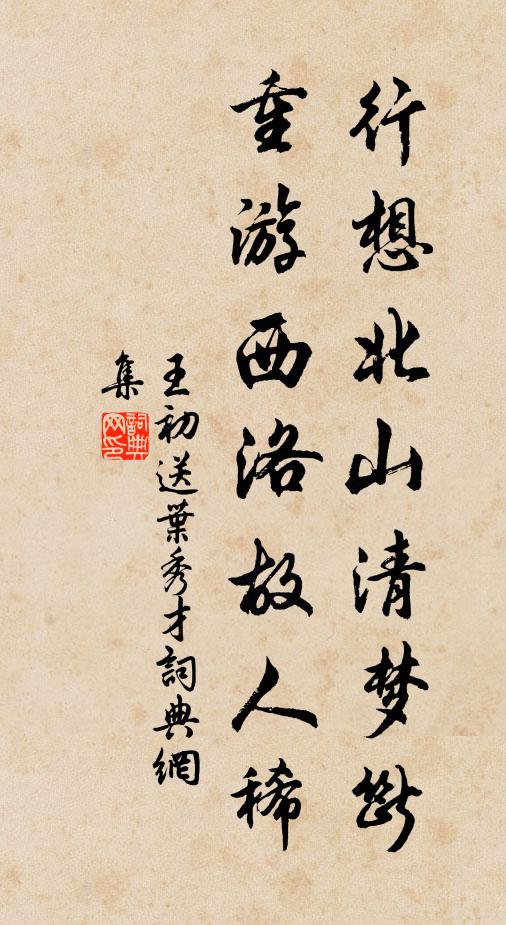 行想北山清梦断
重游西洛故人稀
王初送葉秀才詞典網
集
詞典
网印